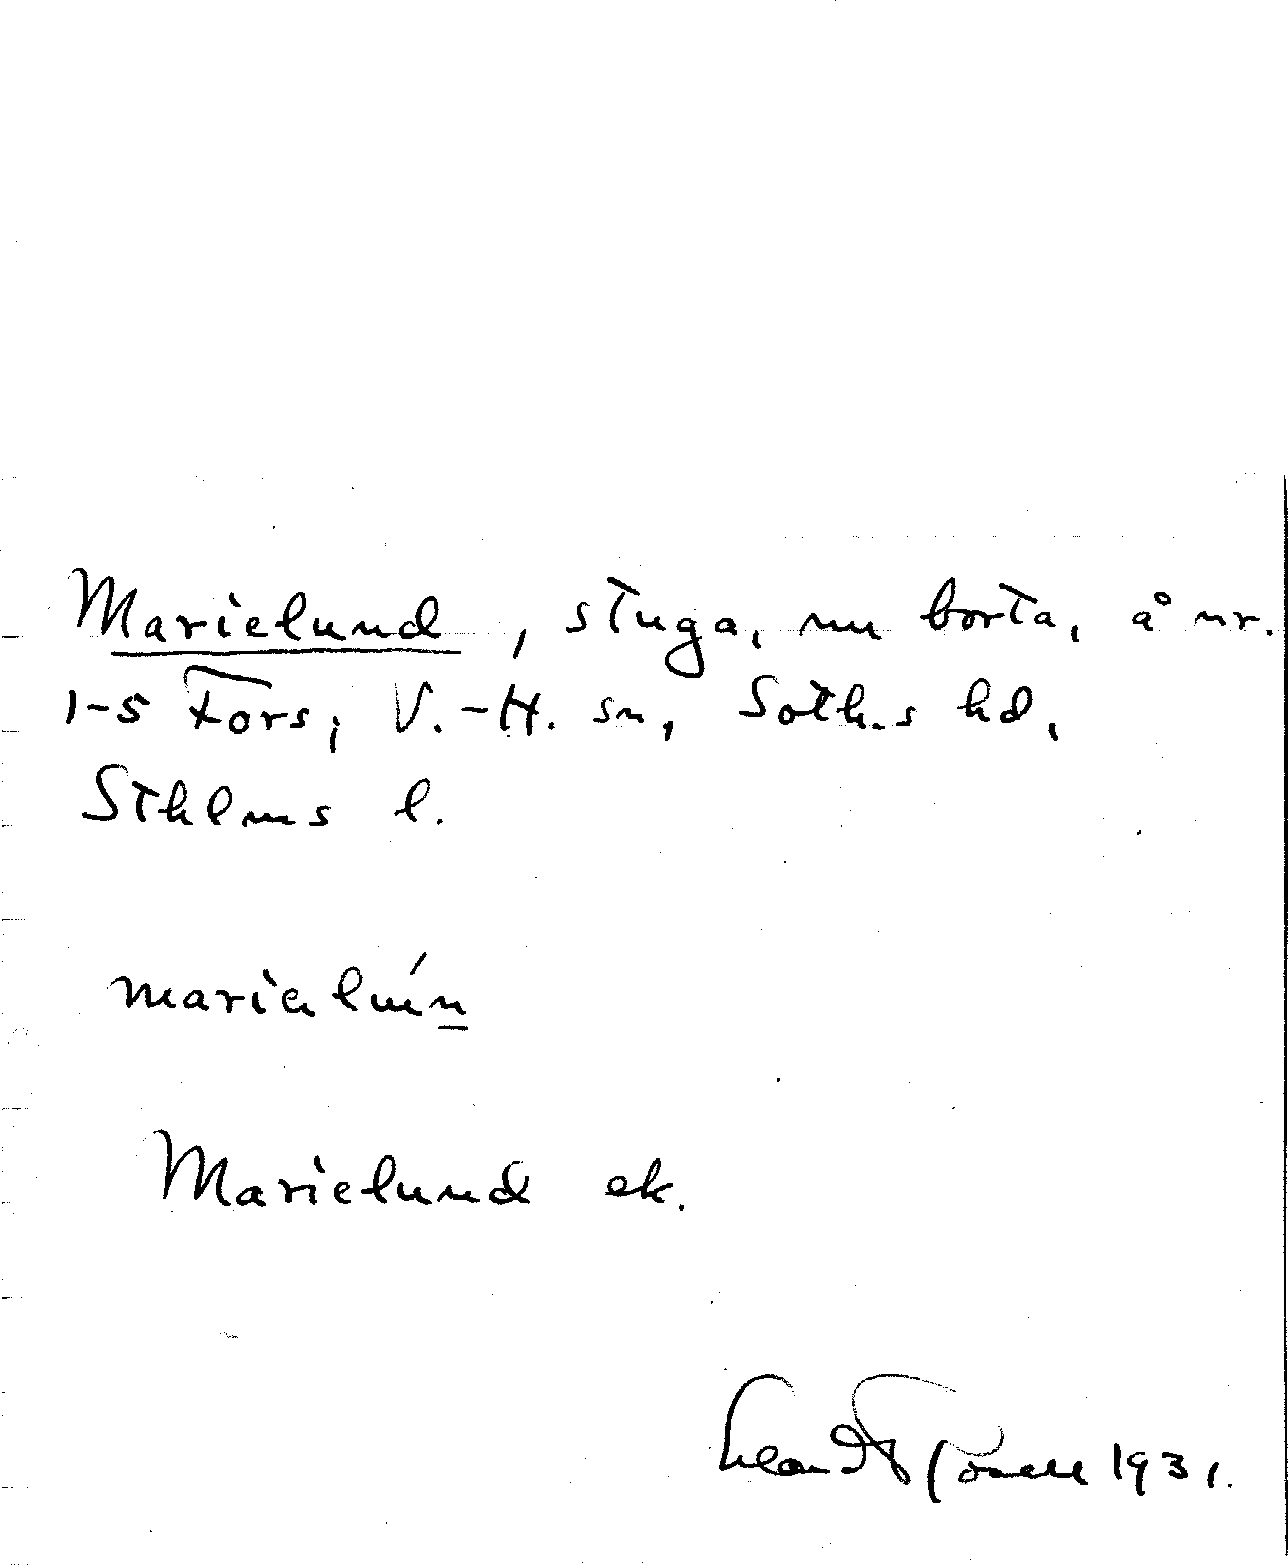 Marielund, stuga, nu borta, å nr.
1-5 Fors, V.-H. sn, Soth.s hd,
Sthlms l.
marialún
Marielund ek.
1931.